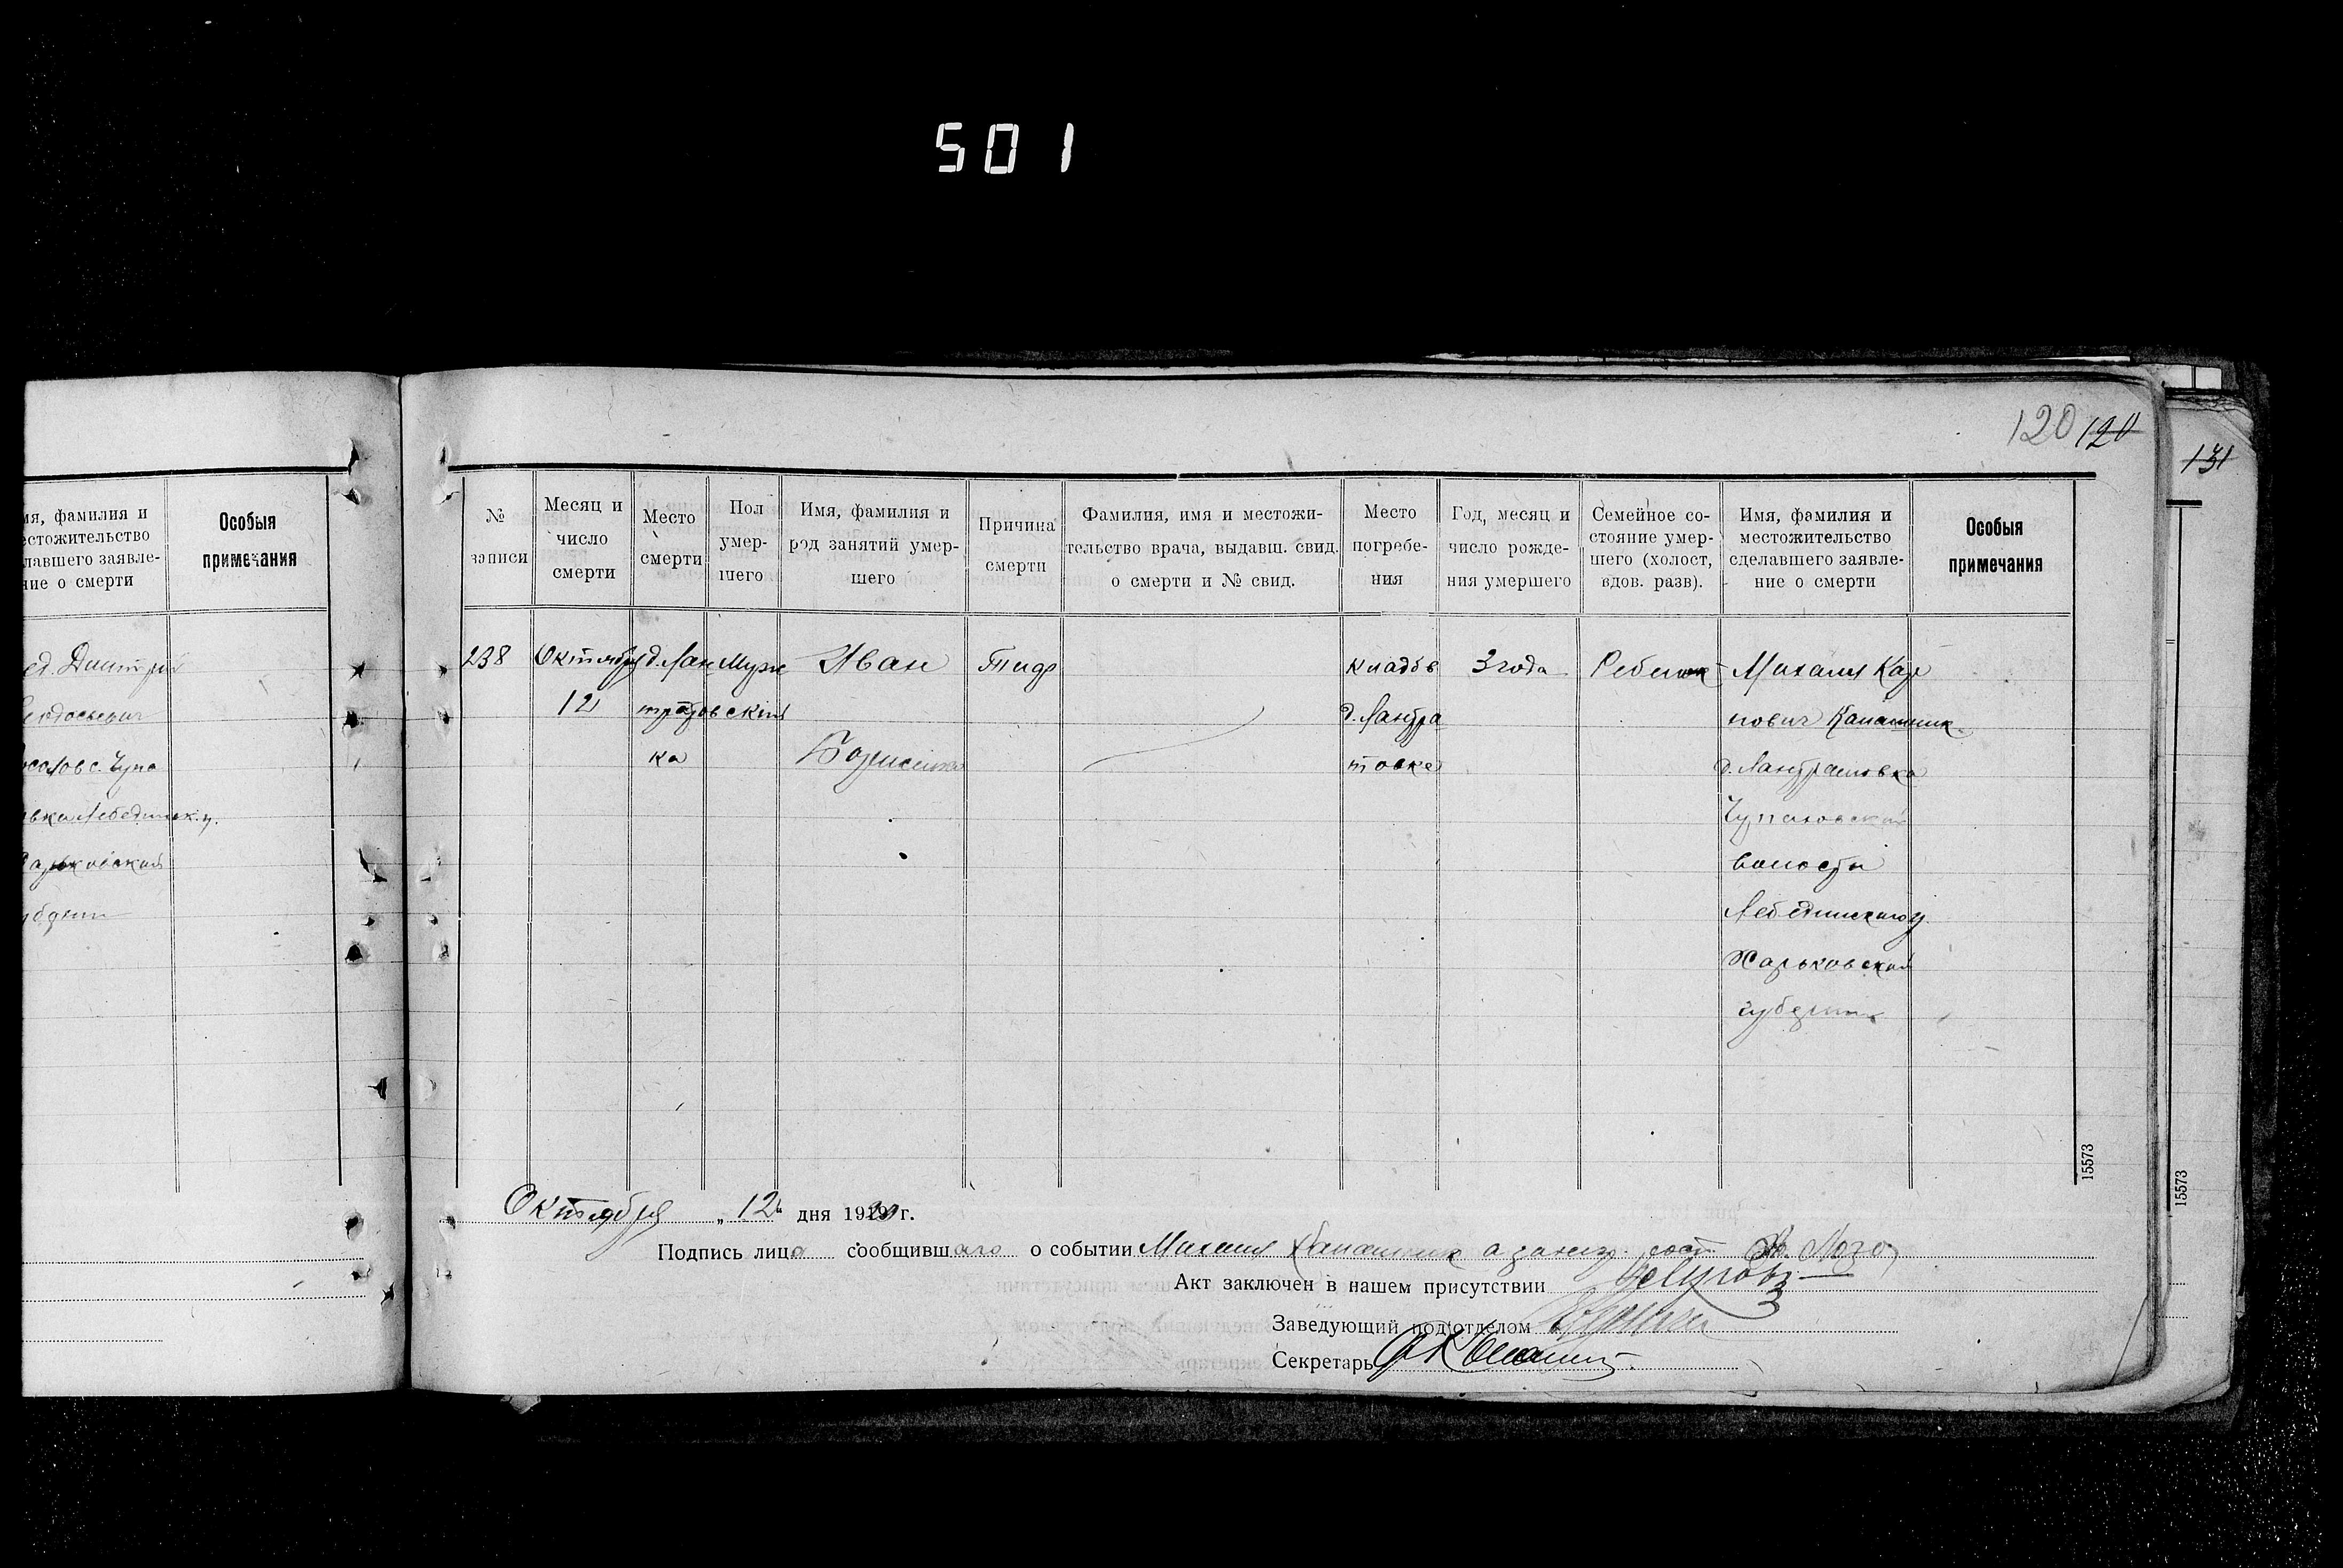 501
120 120
131
мя, фамилия и
естожительство
лавшего заявле-
ние о смерти
Особыя
примечания
ед. Дмитрий
с. Чупа
Лебединск. у.
Харьковской
губернии
№
записи
Месяц и
число
смерти
Место
смерти
Пол
умер-
шего
Имя, фамилия и
род занятий умер-
шего
Причина
смерти
Фамилия, имя и местожи-
тельство врача, выдавш. свид.
о смерти и № свид.
Место
погребе-
ния
Год, месяц и
число рожде-
ния умершего
Семейное со-
стояние умер-
шего (холост,
вдов. разв).
Имя, фамилия и
местожительство
сделавшего заявле-
ние о смерти
Особыя
примечания
238
Октября
12
д. Лан
трато
ка
Муж
вский
Иван
Борисенко
Тиф
кладб в
д. Лантра
товке
3 года
Ребенок
Михаил Кар
пович
д. Лантратовка
Чупаховской
волости
Лебединского у.
Харьковской
губернии
15573
15573
Октября „ 12 “ дня 1920 г.
Подпись лица сообщившаго о событии Михаил
Акт заключен в нашем присутствии
Заведующий под'отделом
Секретарь